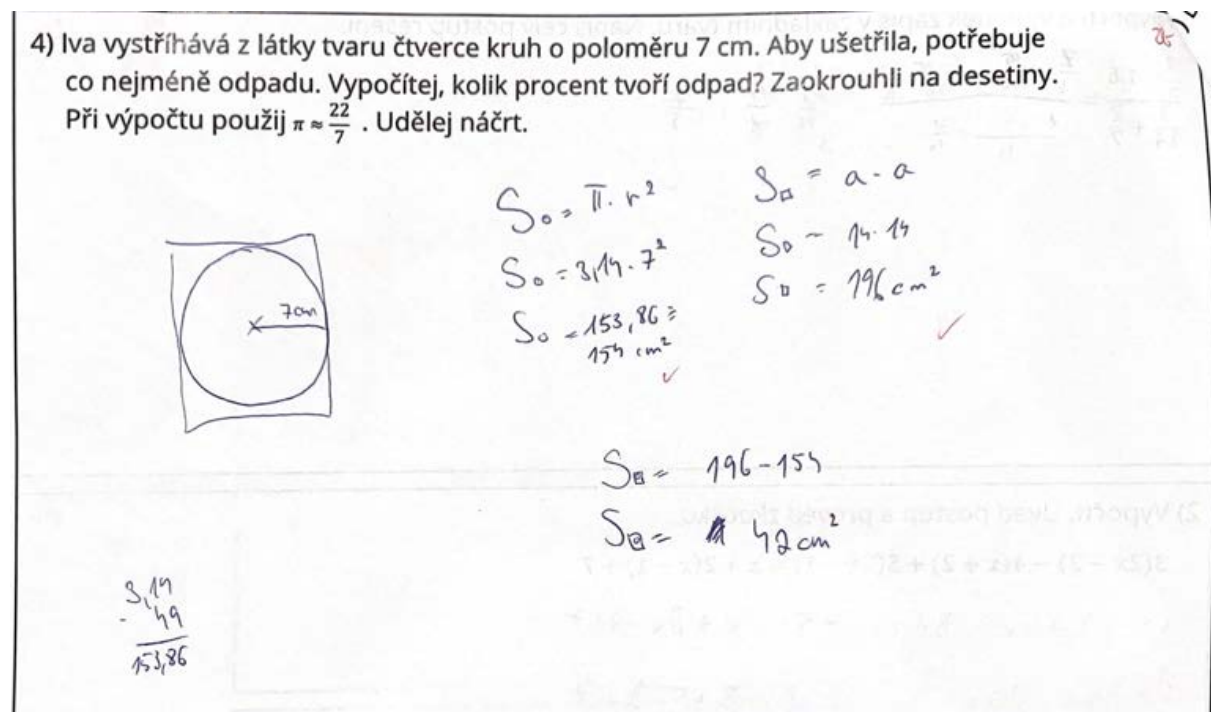 4) Iva vystříhává z látky tvaru čtverce kruh o poloměru 7 cm. Aby ušetřila, potřebuje
co nejméně odpadu. Vypočítej, kolik procent tvoří odpad? Zaokrouhli na desetiny.
Při výpočtu použij π ≈ 22/7 . Udělej náčrt.
7cm
S○ = π · r²
S○ = 3,14 · 7²
S○ = 153,86 ≐
154 cm²
S□ = a · a
S□ = 14 · 14
S□ = 196 cm²
S = 196 - 154
S = 42 cm²
3,14
· 49
153,86